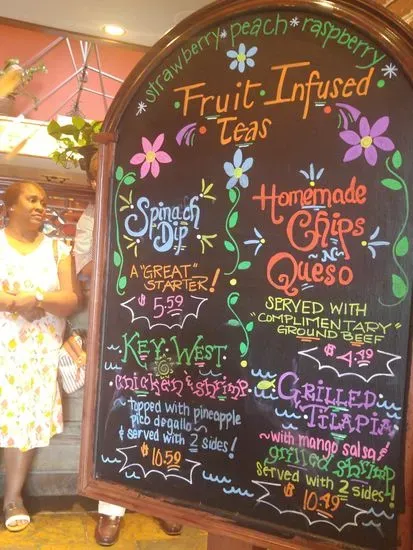 strawberry * peach * raspberry *
Fruit Infused
Teas
Spinach
Dip
A "GREAT"
STARTER!
$5.59
Homemade
Chips
~N~
Queso
SERVED WITH
"COMPLIMENTARY"
GROUND BEEF
$4.49
KEY WEST
chicken & shrimp
topped with pineapple
pico degallo ~
& served with 2 sides!
$10.59
GRILLED
TILAPIA
~with mango salsa &
grilled shrimp
served with 2 sides!
$10.49